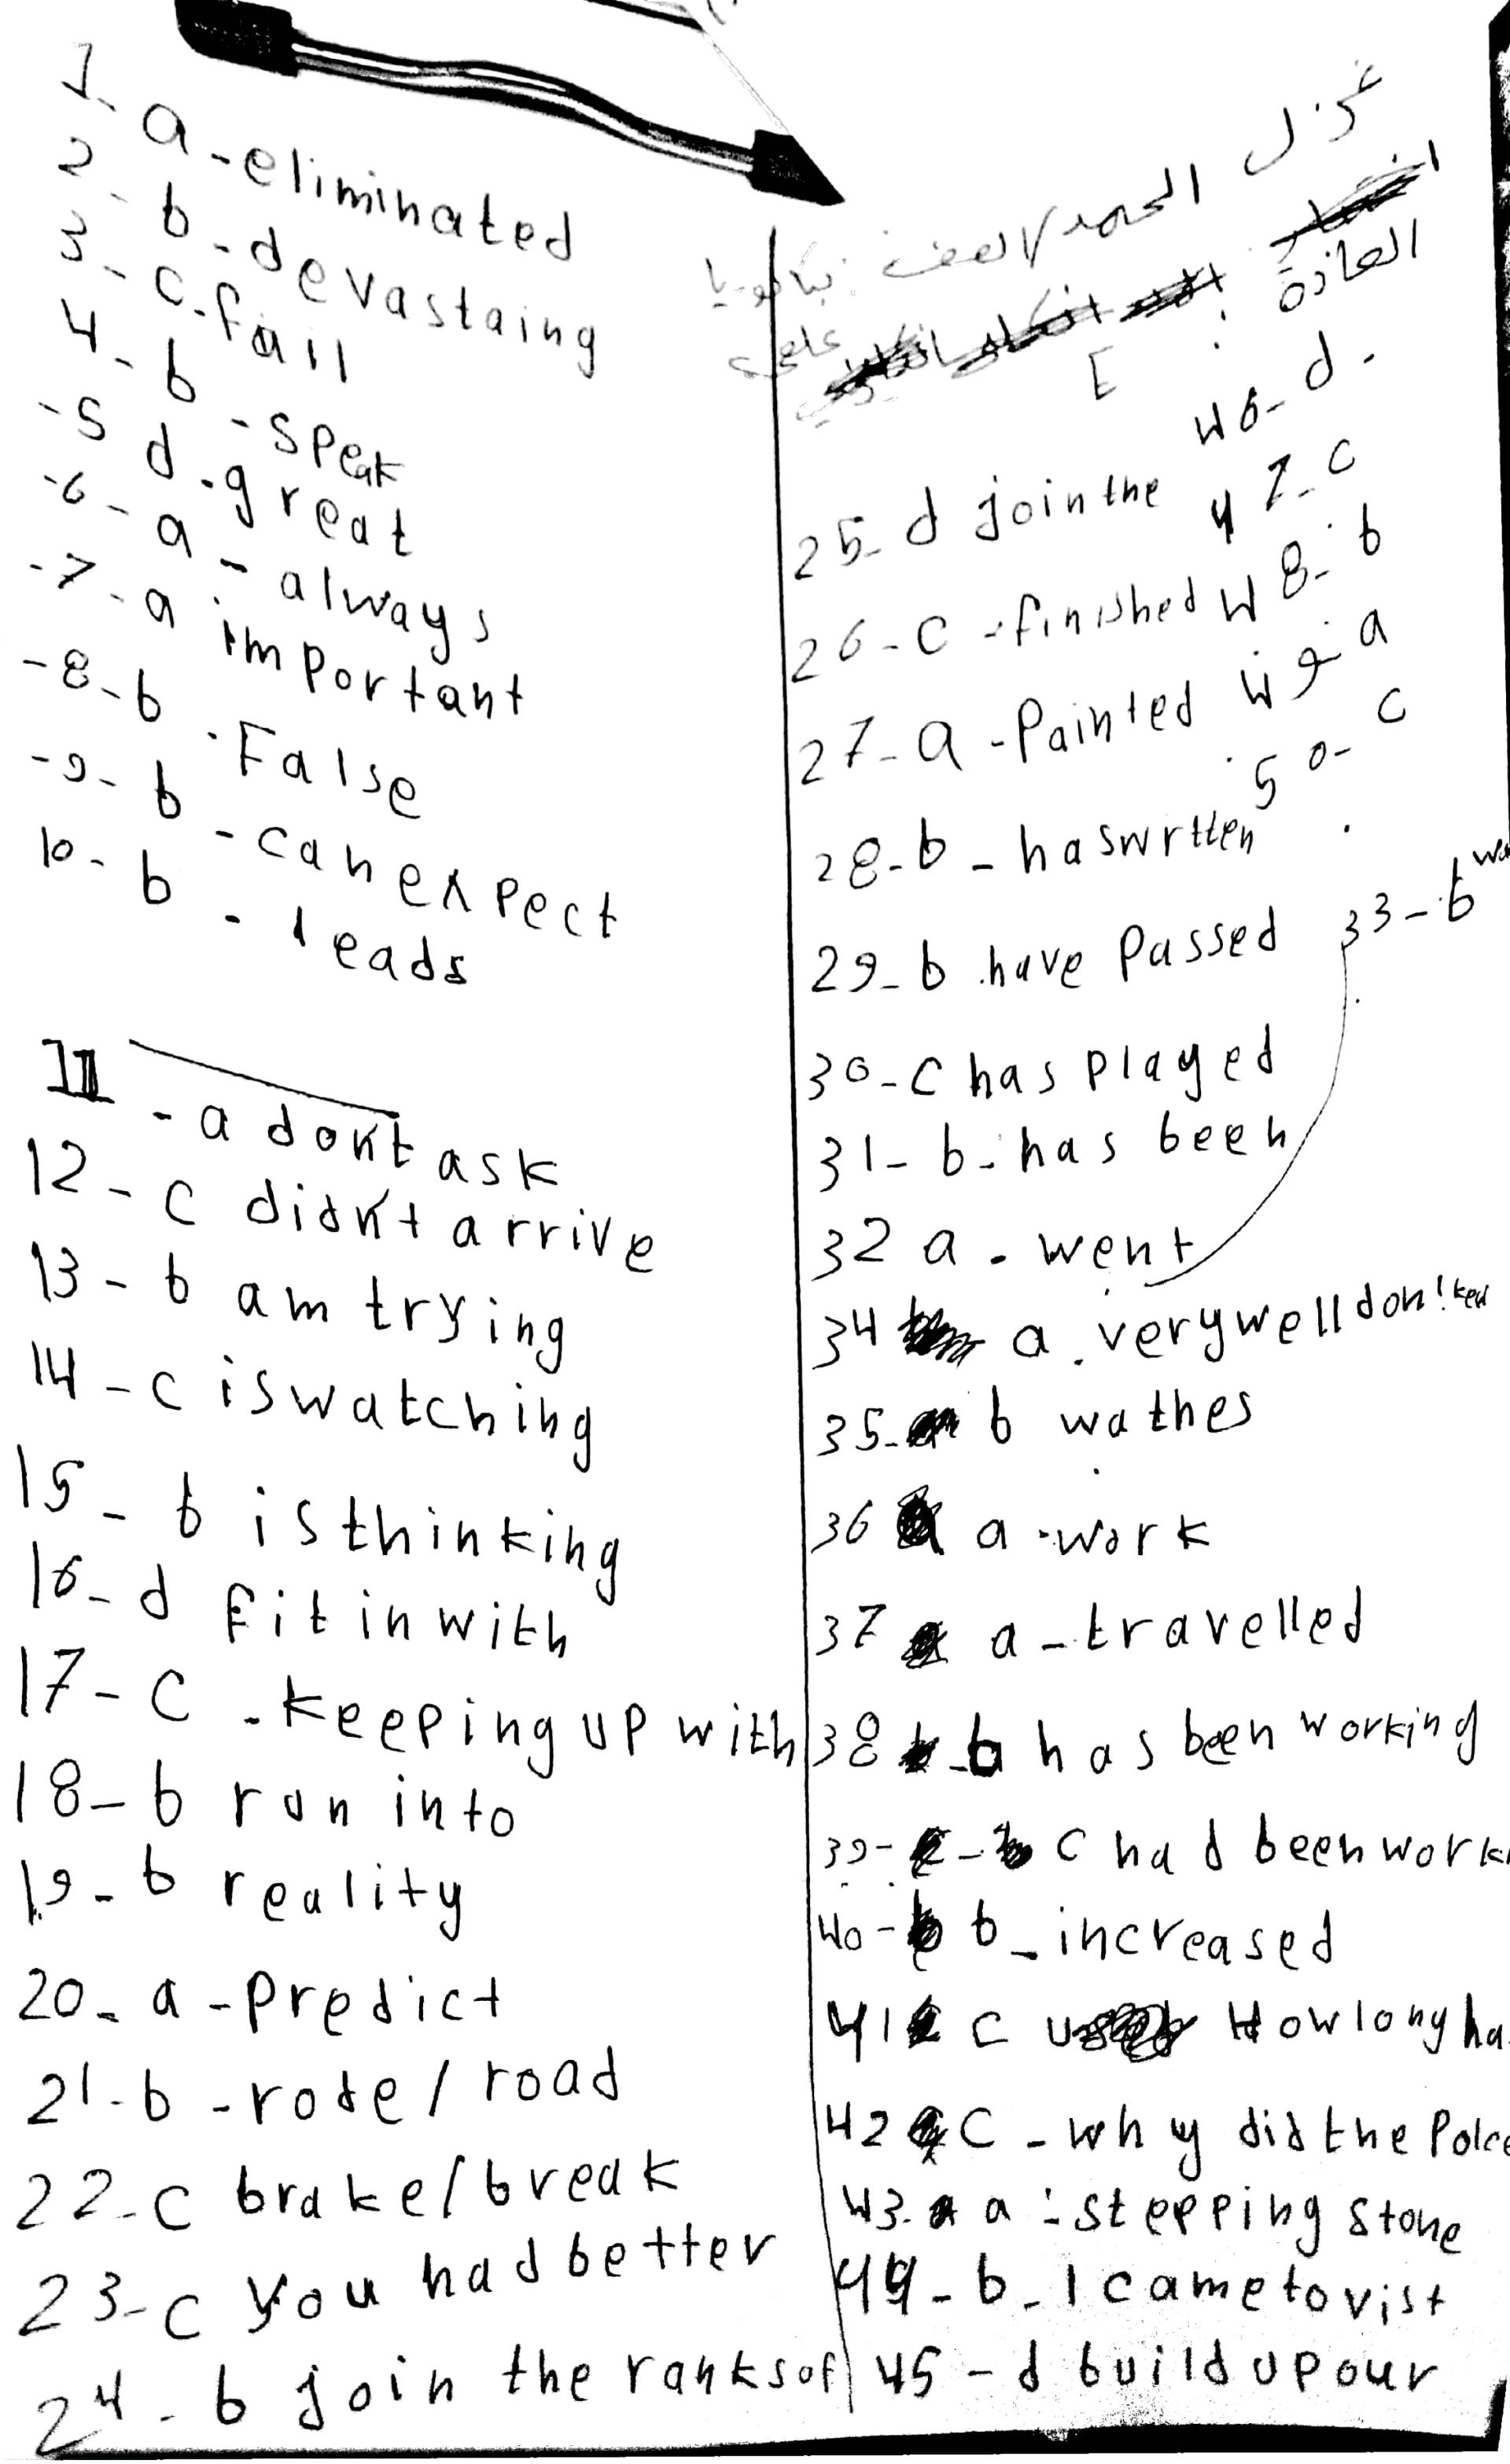 1- a - eliminated
2 - b - devastaing
3 - c - fail
4 - b - speak
-5 d - great
-6 - a - always
-7 - a important
-8 - b - False
-9 - b - can expect
10 - b - leads
11 - a don't ask
12 - c didn't arrive
13 - b am trying
14 - c is watching
15 - b is thinking
16 - d fit in with
17 - c - keeping up with
18 - b run into
19 - b reality
20 - a - predict
21 - b - rode / road
22 - c brake / break
23 - c you had better
24 - b join the ranks of
غزل الحمد / الصف : بكالوريا
علمي
المادة : E
25 - d join the
26 - c - finished
27 - a - Painted
28 - b - has wrtten
29 - b have Passed
30 - c has played
31 - b - has been
32 a - went
33 - b
34 a . very well don!
35 - b wathes
36 a - work
37 a - travelled
38 - b has been working
39 - c had been
40 - b - increased
41 c How long
42 c - why did the
43 - a - stepping stone
44 - b - I came to vist
45 - d build up our
46 - d -
47 - c
48 - b
49 - a
50 - c